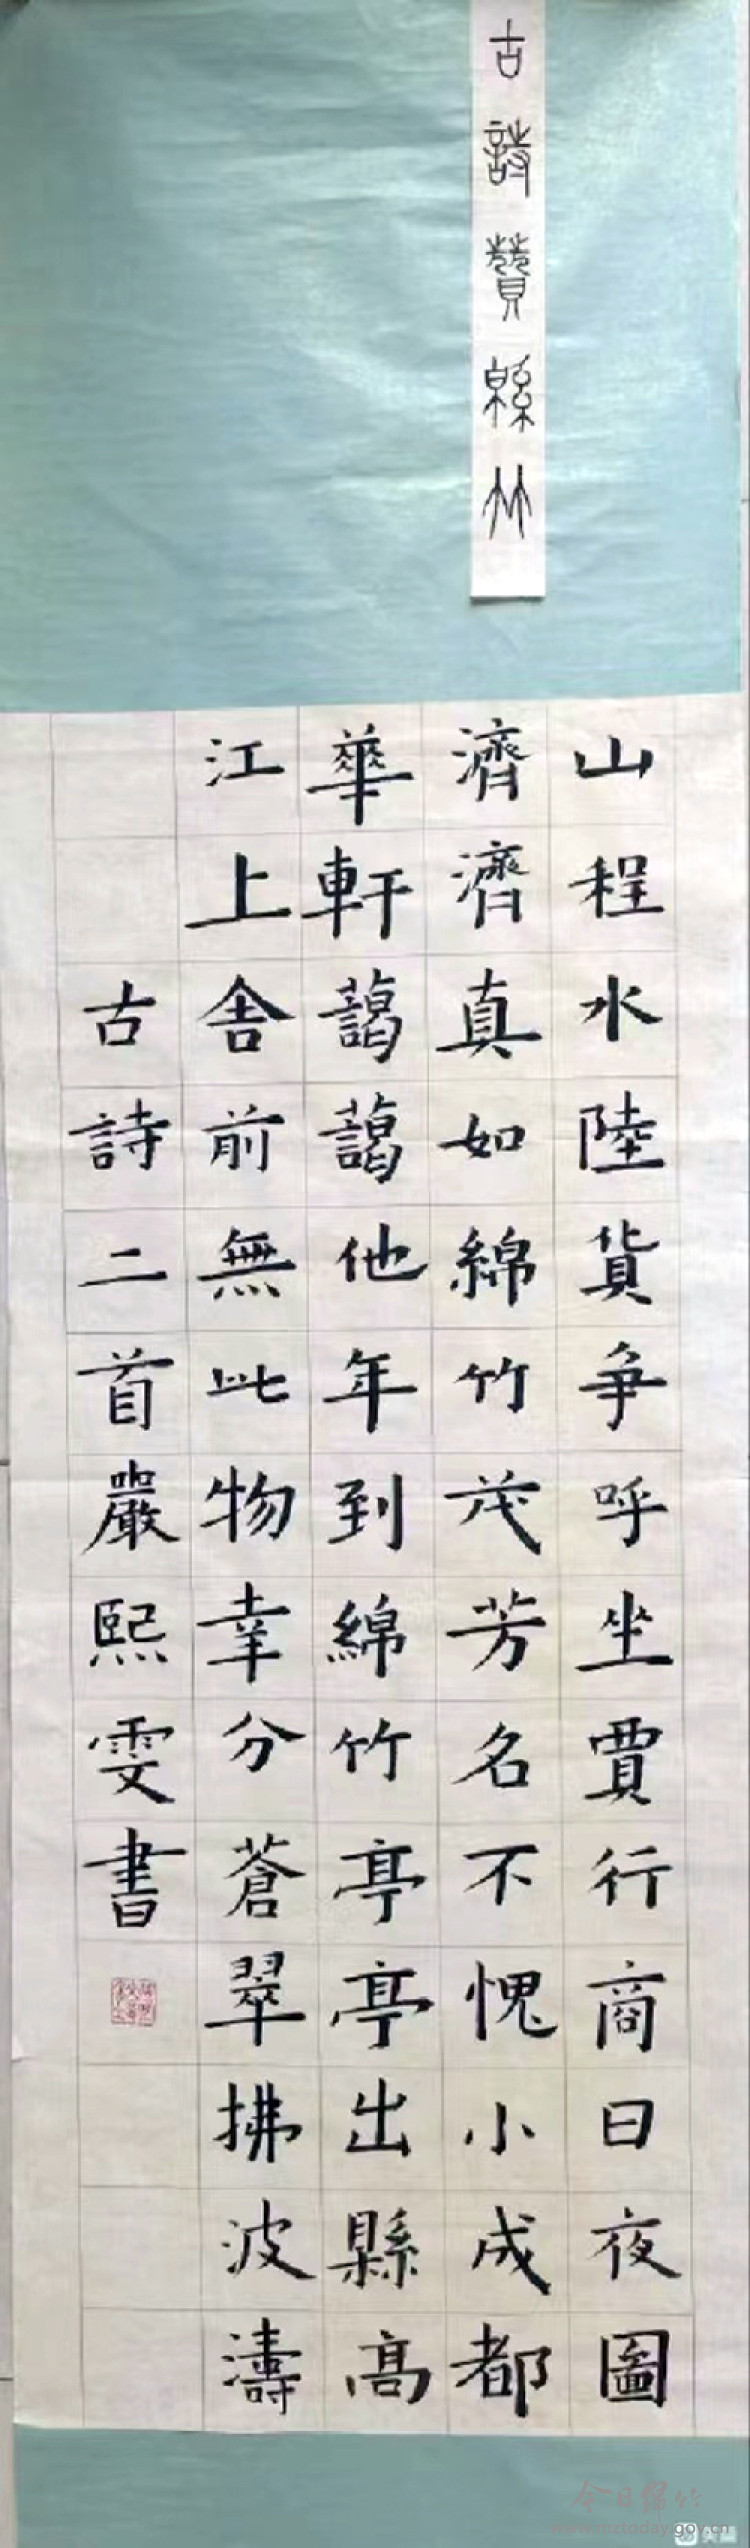 古詩贊緜竹
山程水陸貨争呼坐賈行商日夜圖
濟濟真如綿竹茂芳名不愧小成都
華軒藹藹他年到綿竹亭亭出縣高
江上舍前無此物幸分蒼翠拂波濤
古詩二首嚴熙雯書
今日绵竹
www.mztoday.gov.cn
美篇